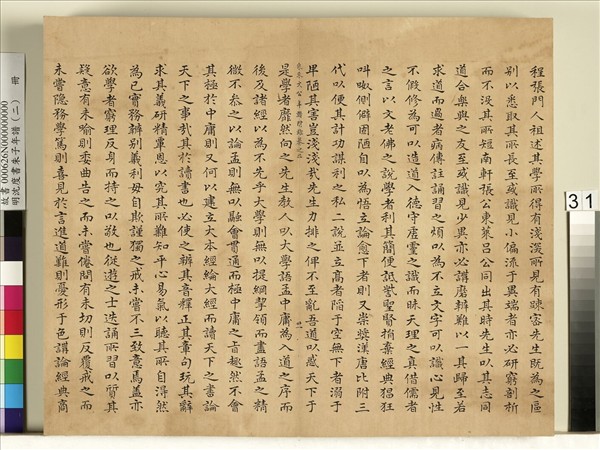 程張門人祖述其學所得有淺深所見有疎密先生既為之區
別以悉取其所長至或識見小偏流于異端者亦必研窮剖析
而不沒其所短南軒張公東萊呂公同出其時先生以其志同
道合樂與之友至或識見少異亦必講磨辨難以一其歸至若
求道而過者病傳註誦習之煩以為不立文字可以識心見性
不假修為可以造道入德守虛靈之識而昧天理之真借儒者
之言以文老佛之說學者利其簡便詆訾聖賢捐棄經典猖狂
叫呶側僻固陋自以為悟立論愈下者則又崇獎漢唐比附三
代以便其計功謀利之私二說並立高者陷于空無下者溺于
卑陋其害豈淺淺哉先生力排之俾不至亂吾道以惑天下于
是學者靡然向之先生教人以大學語孟中庸為入道之序而
後及諸經以為不先乎大學則無以提綱挈領而盡語孟之精
微不參之以論孟則無以融會貫通而極中庸之旨趣然不會
其極於中庸則又何以建立大本經綸大經而讀天下之書論
天下之事哉其於讀書也必使之辨其音釋正其章句玩其辭
求其義研精覃思以究其所難知平心易氣以聽其所自得然
為己實務辨别義利毋自欺謹獨之戒未嘗不三致意焉蓋亦
欲學者窮理反身而持之以敬也從遊之士迭誦所習以質其
疑意有未喻則委曲告之而未嘗倦問有未切則反覆戒之而
未嘗隱務學篤則喜見於言進道難則憂形于色講論經典商
故書 000626N000000000
明沈度書朱子年譜 (二) 冊
31